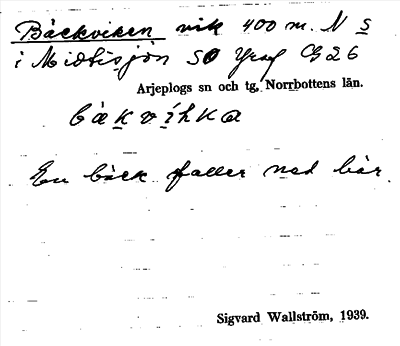 Bäckviken vik 400 m. N s
i Midtisjön SO Graf G26
Arjeplogs sn och tg, Norrbottens län.
bäkvihka
En bäck faller ned här.
Sigvard Wallström, 1939.